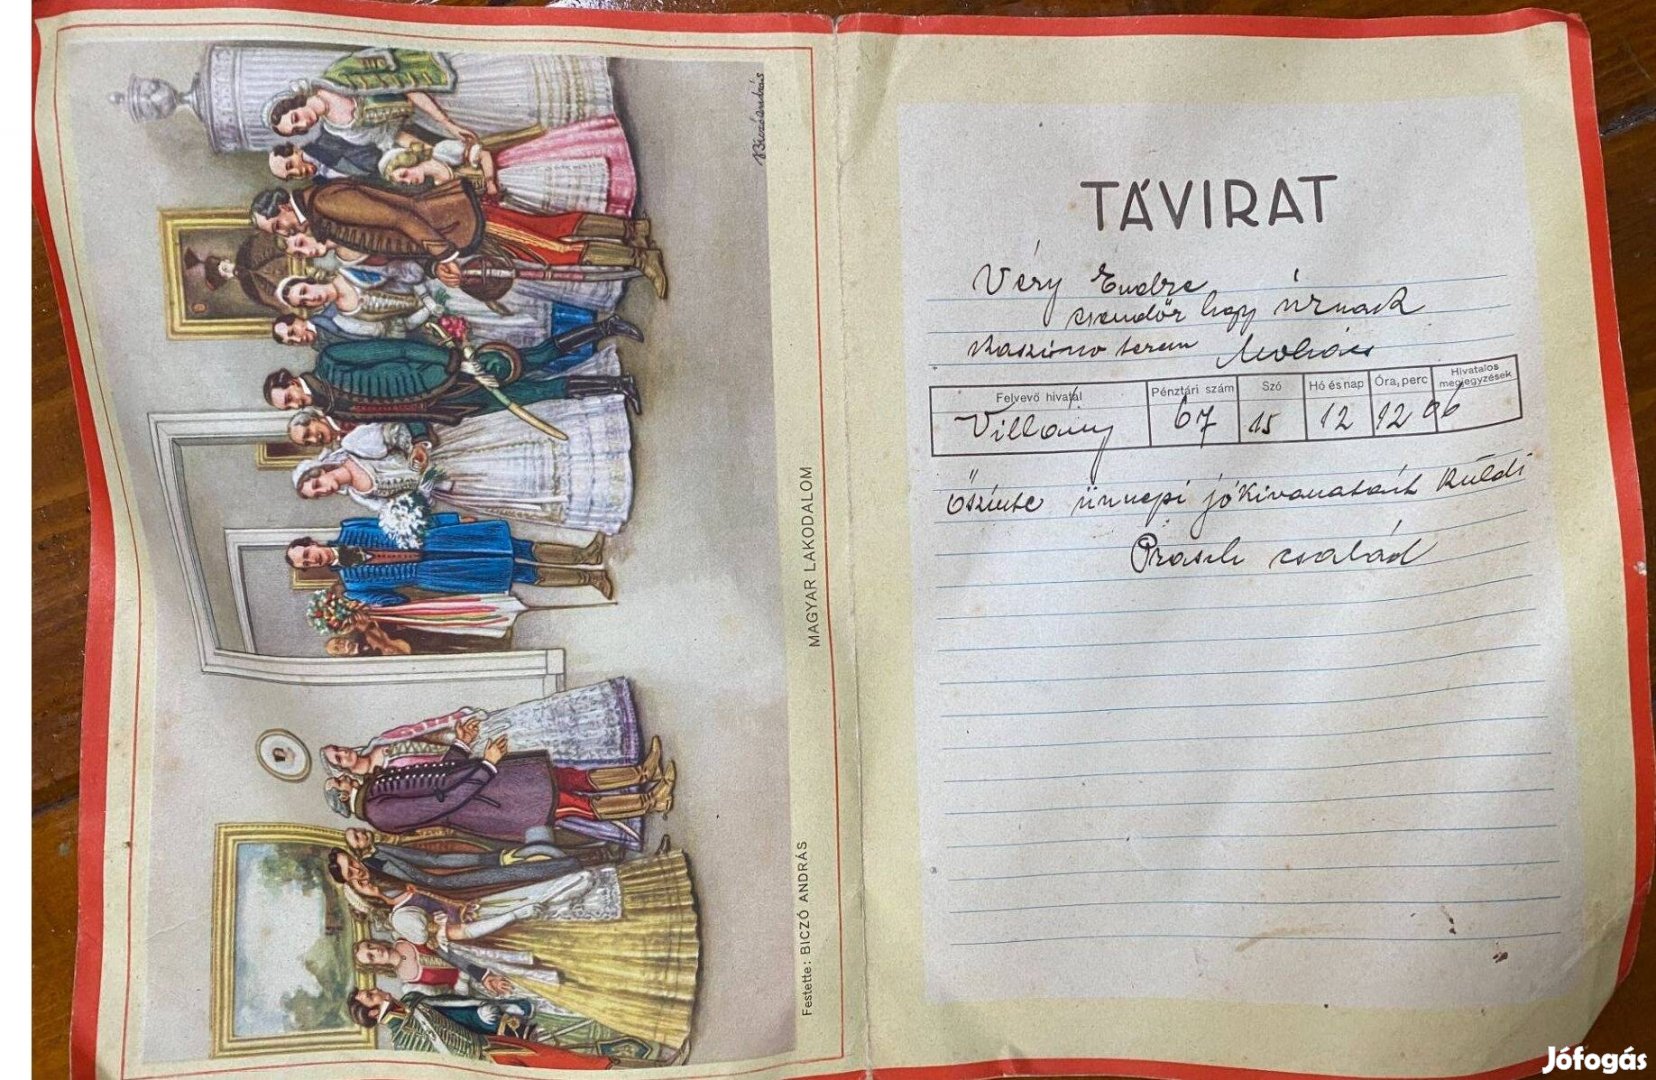 Biczó András
MAGYAR LAKODALOM
Festette: BICZÓ ANDRÁS
TÁVIRAT
Véry Endre
csendőr hgy úrnak
Kaszino terem Mohács
Felvevő hivatal Pénztári szám Szó Hó és nap Óra, perc Hivatalos megjegyzések
Villány 67 15 12 12 06
Őszinte ünnepi jókivanatait küldi
család
Jófogás